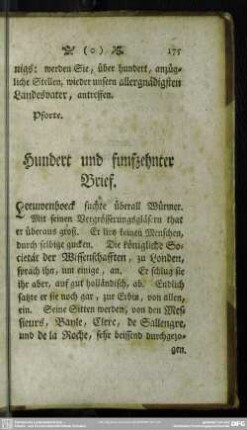 ( 0 ) 175
nigs: werden Sie, über hundert, anzüg-
liche Stellen, wieder unsern allergnädigsten
Landesvater, antreffen.
Pforte.
Hundert und funfzehnter
Brief.
Leeuwenhoeck suchte überall Würmer.
Mit seinen Vergrösserungsgläsern that
er überaus groß. Er lies keinen Menschen,
durch selbige gucken. Die königliche So-
cietät der Wissenschafften, zu Londen,
sprach ihn, um einige, an. Er schlug sie
ihr aber, auf gut holländisch, ab. Endlich
satzte er sie noch gar, zur Erbin, von allen,
ein. Seine Sitten werden, von den Mes-
sieurs, Bayle, Clerc, de Sallengre,
und de la Roche, sehr beissend durchgezo-
gen.